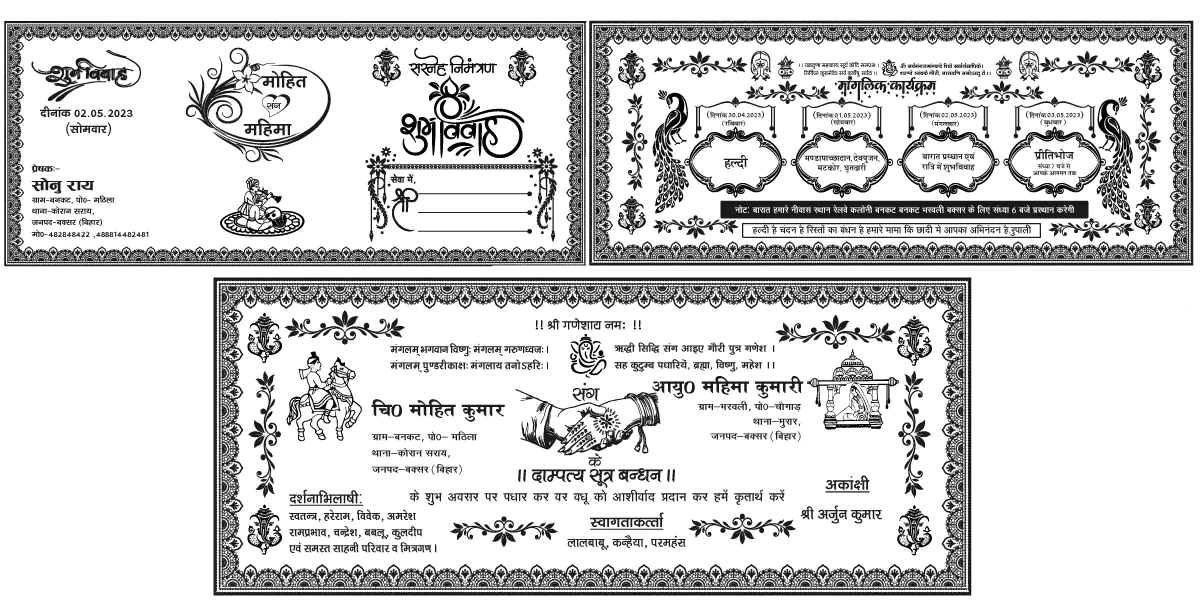 शुभ विवाह
दीनांक 02.05.2023
(सोमवार)
मोहित
संग
महिमा
प्रेषकः-
सोनु राय
ग्राम-बनकट, पो०- मठिला
थाना-कोरान सराय,
जनपद-बक्सर (बिहार)
मो०-482848422 ,488814482481
सस्नेह निमंत्रण
शुभ विवाह
सेवा में,
श्री
मांगलिक कार्यक्रम
(दिनांक 30.04.2023)
(रविबार)
हल्दी
(दिनांक 01.05.2023)
(सोमबार)
मण्डापाच्छादान, देवपुजन,
मटकोर, घृतढारी
(दिनांक 02.05.2023)
(मंगलबार)
बारात प्रस्थान एवं
रात्रि में शुभविवाह
(दिनांक 03.05.2023)
(बुधवार)
प्रीतिभोज
संध्या 7 बजे से
आपके आगमन तक
नोटः बारात हमारे नीवास स्थान रेलवे कलोनी बनकट बनकट भरवली बक्सर के लिए संध्या 6 बजे प्रस्थान करेगी
हल्दी हे चंदन हे रिस्तो का बंधन हे हमारे मामा कि छादी मे आपका अभिनंदन हे.रुपाली
!! श्री गणेशाय नमः !!
मंगलम् भगवान विष्णुः मंगलम् गरुणध्वजः।
मंगलम् पुण्डरीकाक्षः मंगलाय तनोऽहरिः।
ऋद्धी सिद्धि संग आइए गौरी पुत्र गणेश ।
सह कुटुम्ब पधारियें, ब्रह्मा, विष्णु, महेश ।।
चि0 मोहित कुमार
ग्राम-बनकट, पो०- मठिला
थाना-कोरान सराय,
जनपद-बक्सर (बिहार)
संग
आयु0 महिमा कुमारी
ग्राम-भरवली, पो०-चौगाड़
थाना-मुरार,
जनपद-बक्सर (बिहार)
के
।। दाम्पत्य सूत्र बन्धन ।।
के शुभ अवसर पर पधार कर वर वधू को आशीर्वाद प्रदान कर हमें कृतार्थ करें
दर्शनाभिलाषी:
स्वतन्त्र, हरेराम, विवेक, अमरेश
रामप्रभाव, चन्द्रेश, बबलू, कुलदीप
एवं समस्त साहनी परिवार व मित्रगण।
स्वागताकर्त्ता
लालबाबू, कन्हैया, परमहंस
अकांक्षी
श्री अर्जुन कुमार